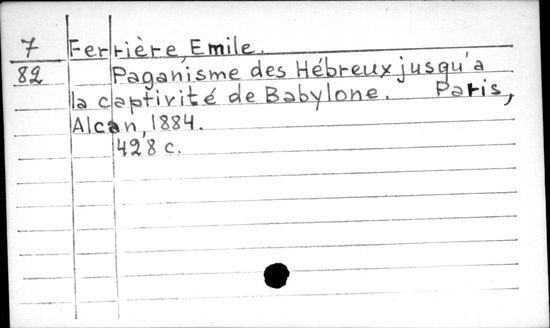 7 Ferrière, Emile.
82 Paganisme des Hébreux jusqu'a
la captivité de Babylone. Paris,
Alcan, 1884.
428 c.